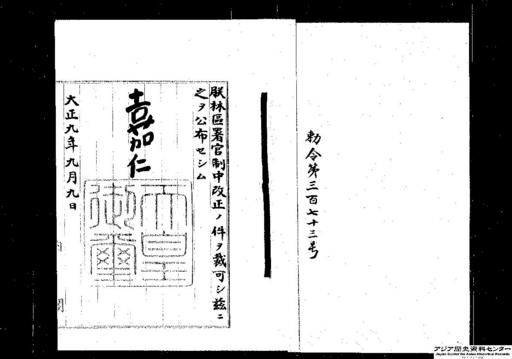 勅令第三百七十三号
朕林區署官制中改正ノ件ヲ裁可シ茲ニ
之ヲ公布セシム
嘉仁
天皇
御璽
大正九年九月九日
閣
アジア歴史資料センター
Japan Center for Asian Historical Records